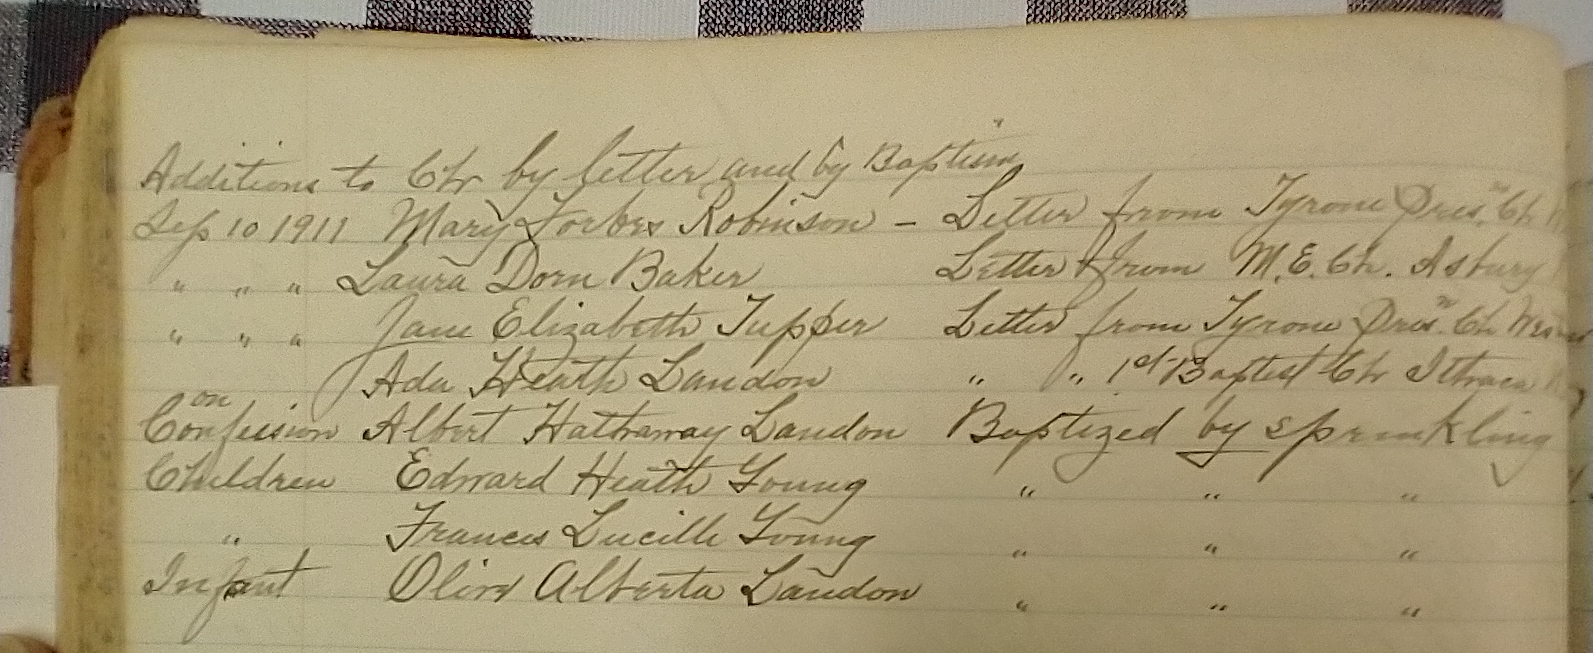 Additions to Chr by letter and by Baptism
Sep 10 1911 Mary Forbes Robinson - Letter from Tyrone Pres.n Ch
" " " Laura Dorn Baker Letter from M.E. Ch. Asbury
" " " Jane Elizabeth Tupper Letter from Tyrone Pres.n Ch
Ada Heath Landon " " 1st Baptist Chr Ithaca
on
Confession Albert Hathaway Landon Baptized by sprinkling
Children Edward Heath Young " " "
" Frances Lucille Young " " "
Infant Olive Alberta Landon " " "